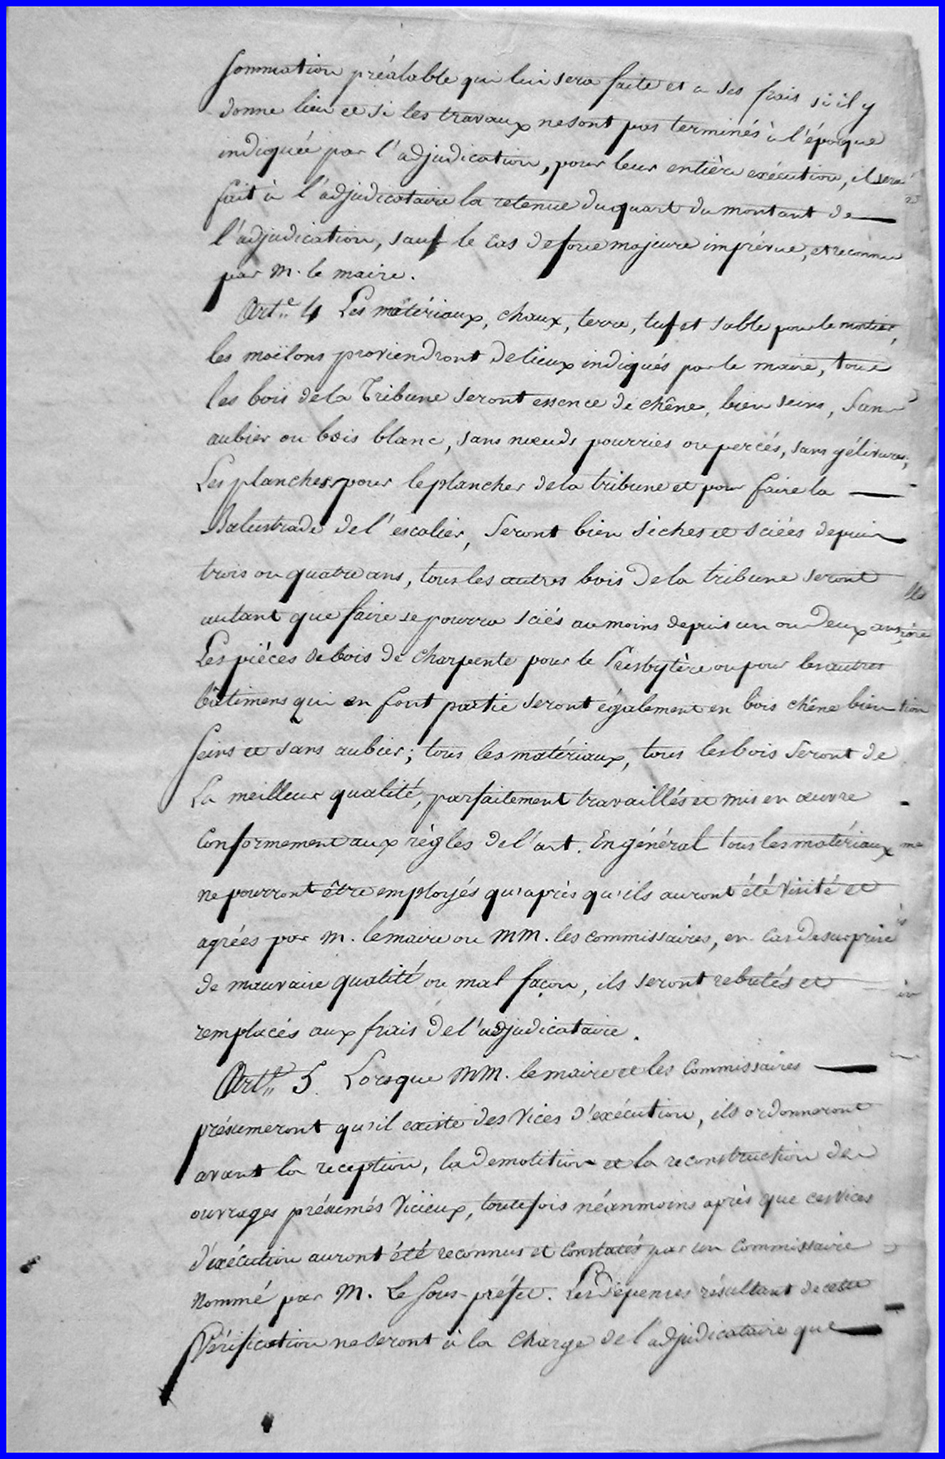 sommation préalable qui lui sera faite et a ses frais si il y
donne lieu et si les travaux ne sont pas terminés à l'époque
indiquée par l'adjudication, pour leur entière exécution, il sera
fait à l'adjudicataire la retenue du quart du montant de
l'adjudication, sauf le cas de force majeure imprévue, et reconnu
par M. le maire.
Art.e 4 Les matériaux, chaux, terre, tuf et sable pour le mortier,
les moëlons proviendront de lieux indiqués par le maire, tous
les bois de la Tribune seront essence de chêne, bien seins, sans
aubier ou bois blanc, sans nœuds pourries ou percés, sans gélivures,
Les planches pour le plancher de la tribune et pour faire la
Balustrade de l'escalier, seront bien sêches et sciées depuis
trois ou quatre ans, tous les autres bois de la tribune seront
autant que faire se pourra sciés au moins depuis un ou deux ans,
Les pièces de bois de charpente pour le Presbytère ou pour les autres
bâtimens qui en font partie seront également en bois chêne bien
seins et sans aubier; tous les matériaux, tous les bois seront de
La meilleur qualité, parfaitement travaillés et mis en œuvre
conformement aux règles de l'art. En général tous les matériaux
ne pourront être employés qu'après qu'ils auront été visité et
agrées par M. le maire ou MM. les commissaires, en cas de surprise
de mauvaise qualité ou mal façon, ils seront rebutés et
remplacés aux frais de l'adjudicataire.
Art.e 5. Lorsque MM. le maire et les commissaires
présumeront qu'il existe des vices d'exécution, ils ordonneront
avant la reception, la demolition et la reconstruction des
ouvrages présumés vicieux, toutefois néanmoins après que ces vices
d'exécution auront été reconnus et constatés par un commissaire
Nommé par M. Le Sous-préfet. Les dépenses résultant de cette
Vérification ne seront à la charge de l'adjudicataire que